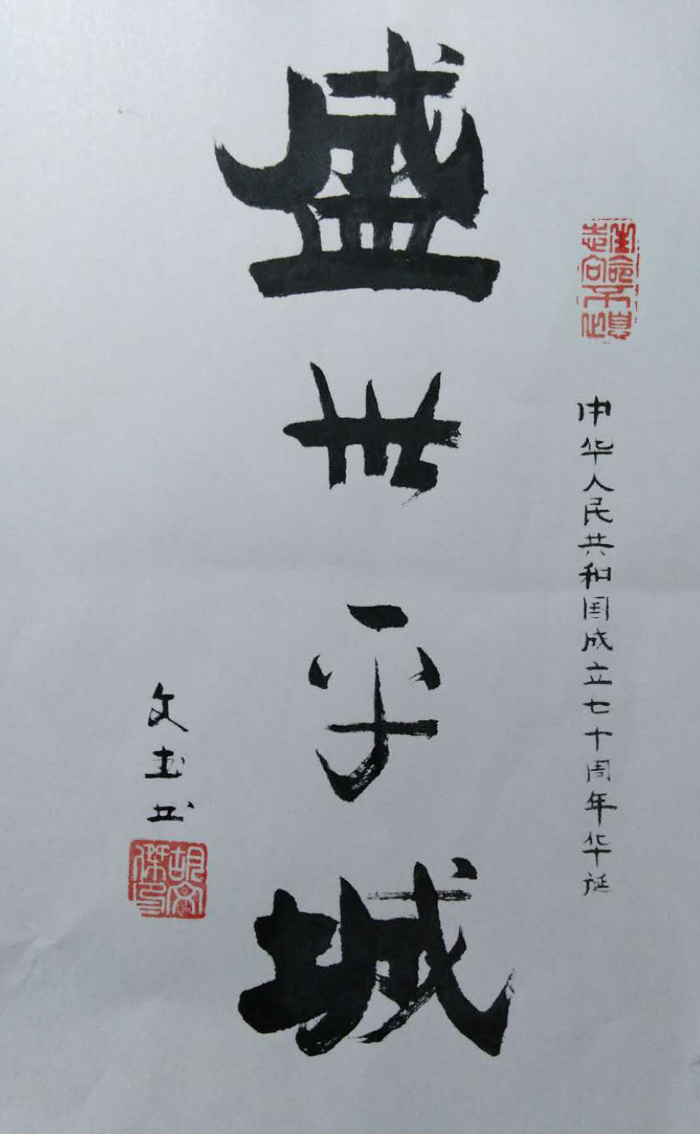 中华人民共和国成立七十周年华诞
盛世平城
文 书
胡文
傑印